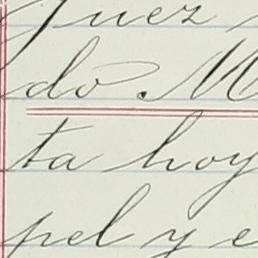 Juez
do M
ta hoy
pel y e